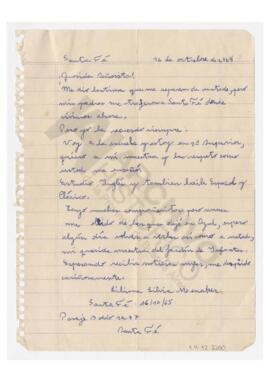 Santa Fé 16 de octubre de 1965
¡Querida Señorita!
Me dió lastima que me separen de usted, pero
mis padres me trajeron a Santa Fé donde
vivimos ahora.
Pero yo la recuerdo siempre.
Voy a la escuela y estoy en 1º Superior,
quiero a mi maestra y la respeto como
usted me enseñó
Estudio Inglés y tambien baile Español y
Clásico.
Tengo muchos compañeritos pero nunca
me olvido de los que dejé en Azul, espero
algún día volver a verlos como a usted,
mi querida maestra del Jardín de Infantes.
Esperando recibir noticias suyas, me despido
cariñosamente.
Liliana Silvia
Santa Fé - 16/10/65
Pasaje
Santa Fé